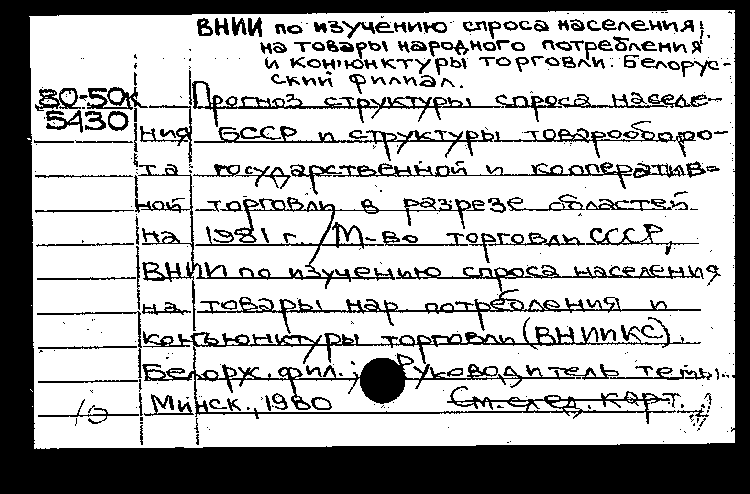 ВНИИ по изучению спроса населения
на товары народного потребления
и конъюнктуры торговли. Белорус-
ский филиал.
80-50к Прогноз структуры спроса населе-
5430 ния БССР и структуры товарооборо-
та государственной и кооператив-
ной торговли в разрезе областей
на 1981 г. / М-во торговли СССР,
ВНИИ по изучению спроса населения
на товары нар потребления и
конъюнктуры торговли (ВНИИКС).
Белорус. фил.; Руководитель темы..
Минск., 1980 См. след. карт.
10